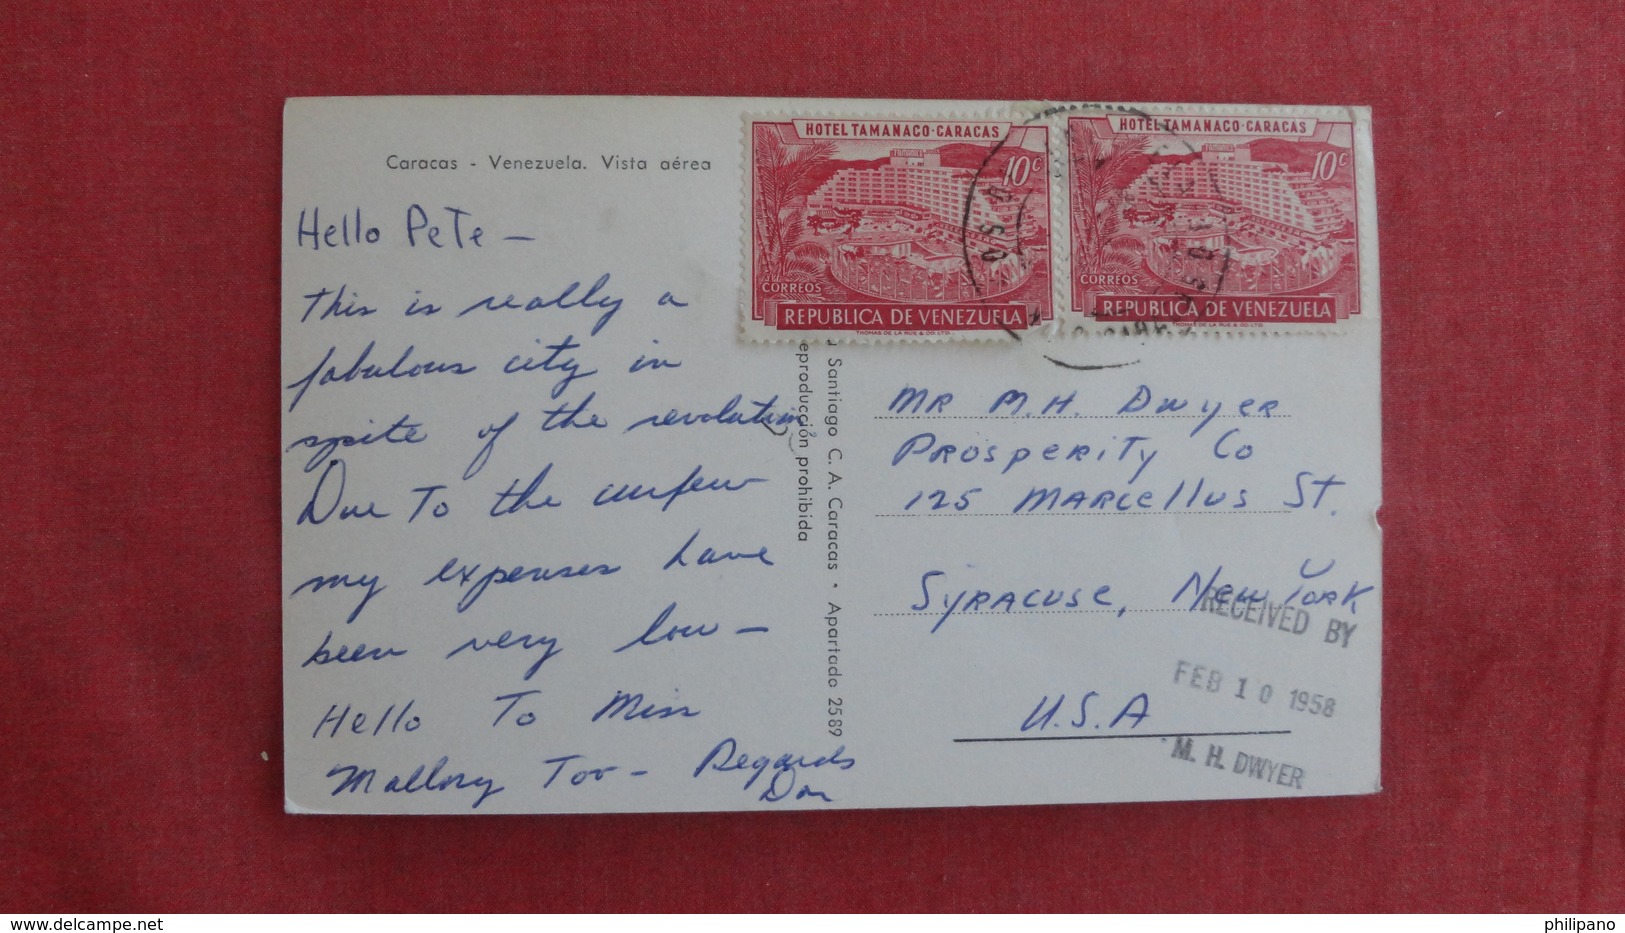 Caracas - Venezuela. Vista aérea
Hello Pete –
This is really a
fabulous city in
spite of the revolution
Due To the curfew
my expenses have
been very low –
Hello To Miss
Mallory Too – Regards
Don
HOTEL TAMANACO-CARACAS
10c
CORREOS
REPUBLICA DE VENEZUELA
THOMAS DE LA RUE & CO. LTD.
HOTEL TAMANACO-CARACAS
10c
CORREOS
REPUBLICA DE VENEZUELA
THOMAS DE LA RUE & CO. LTD.
Santiago C. A. Caracas • Apartado 2589
eproducción prohibida
MR M.H. Dwyer
Prosperity Co
125 MARCellus St.
Syracuse, New York
U.S.A
RECEIVED BY
FEB 10 1958
M. H. DWYER
http://www.delcampe.net
philipano